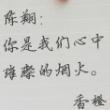 陈翔:
你是我们心中
璀璨的烟火。
香橙